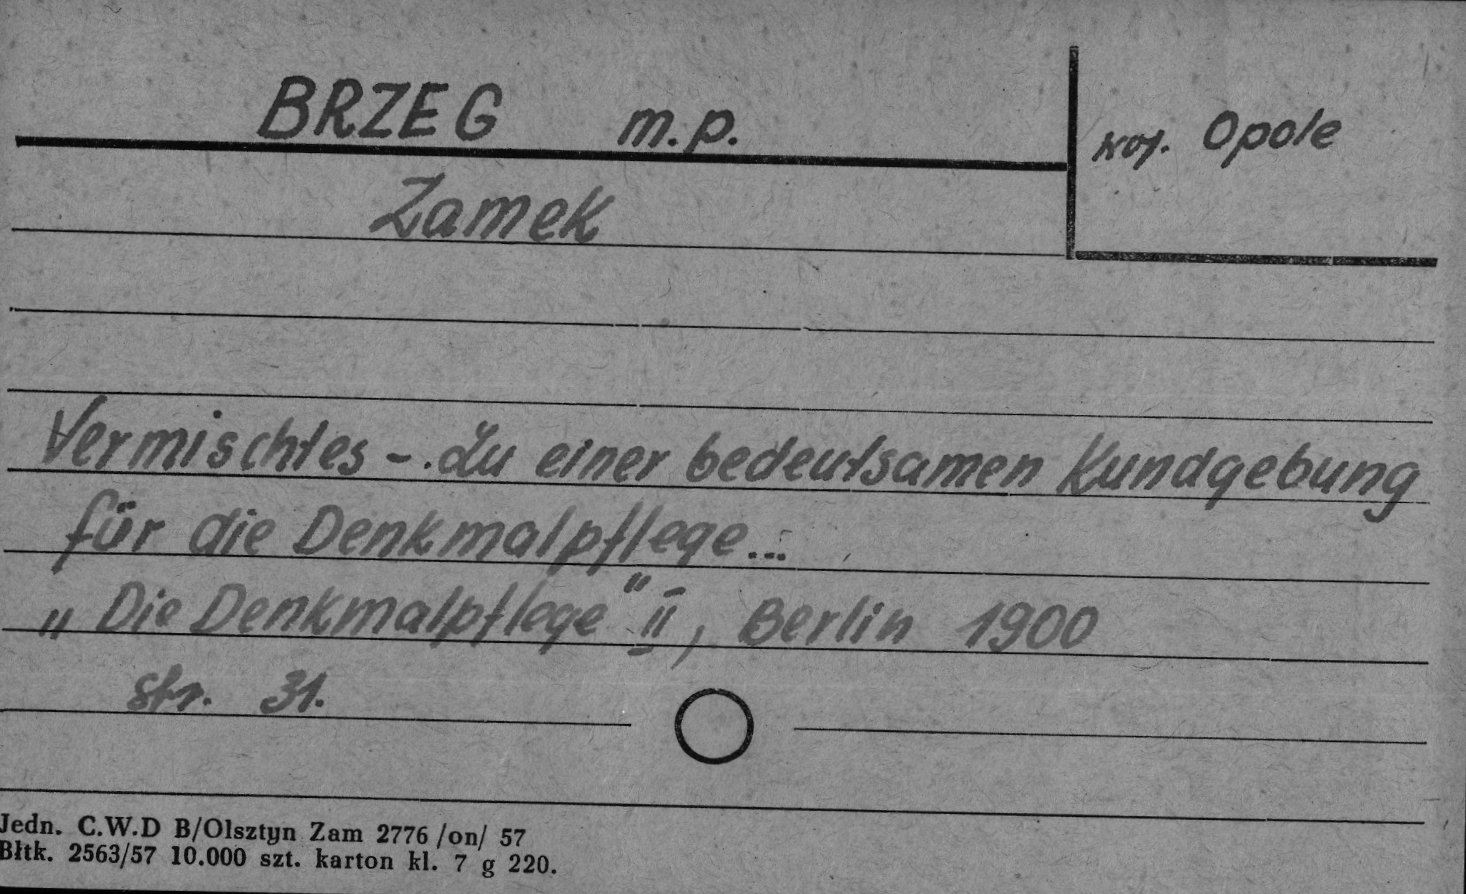 BRZEG m.p.
woj. Opole
Zamek
Vermischtes - Zu einer bedeutsamen Kundgebung
für die Denkmalpflege...
„Die Denkmalpflege" II, Berlin 1900
str. 31.
Jedn. C.W.D B/Olsztyn Zam 2776 /on/ 57
Błtk. 2563/57 10.000 szt. karton kl. 7 g 220.